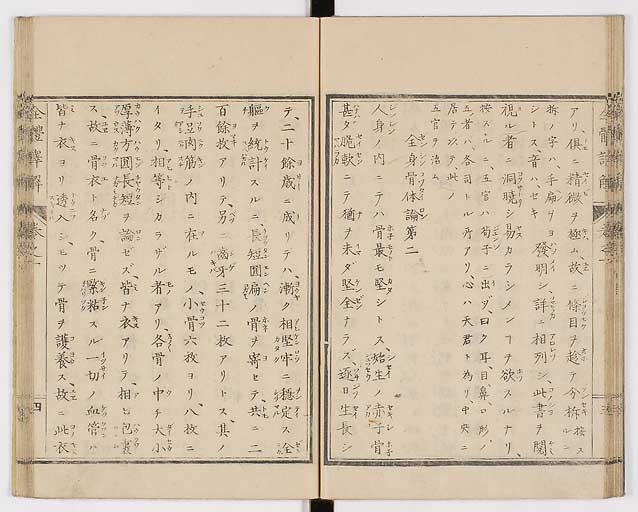 アリ、俱ニ精微ヲ極ム、故ニ條目ヲ
析ノ字ハ、手扁ヲヨシトス、音ハ、セキ
發明シ、詳ニ相列シ、此書ヲ閲
視ル者ニ洞曉シ易カラシメンヿヲ欲スルナリ、
按スルニ、五官ハ荀子ニ出ヅ、曰ク耳、目、鼻、口、形ノ
五者ハ、各司トル所アリ、心ハ天君ト為リ、中央ニ
居テ以テ此ノ
五官ヲ治ム
全身骨体論第二
人身ノ内ニテハ骨最モ堅シトス、始生ノ赤子骨
甚タ脆軟ニテ猶ヲ未ダ堅全ナラズ、逐日生長シ
テ、二十餘歳ニ成リテハ、漸ク相堅牢ニ穩定ス全
軀ヲ統計スルニ、長短圓扁ノ骨ヲ寄セテ、共ニ二
百餘枚アリテ、另ニ齒牙三十二枚アリトス、其ノ
手足肉筋ノ内ニ在ルモノ、小骨六枚ヨリ八枚ニ
イタリ相等シカラザル者アリ、各骨ノ中チ大小
厚薄方圓長短ヲ論ゼズ皆ナ衣アリテ、相ヒ包裹
ス、故ニ骨衣ト名ク、骨ニ緊粘スル一切ノ血管ハ
皆ナ衣ヨリ透入シ、モツテ骨ヲ護養ス故ニ此衣
全體譯解
卷之一
四